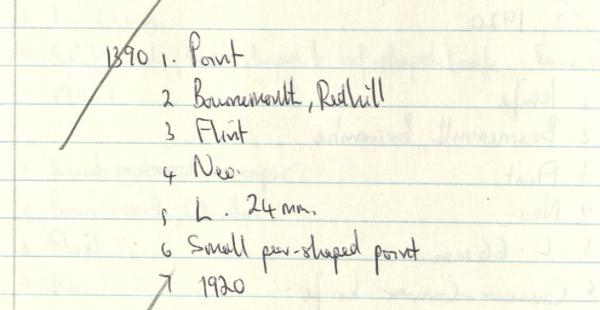 1390 1. Point
2 Bournemouth, Redhill
3 Flint
4 Neo.
5 L. 24mm.
6 Small pear-shaped point
7 1920